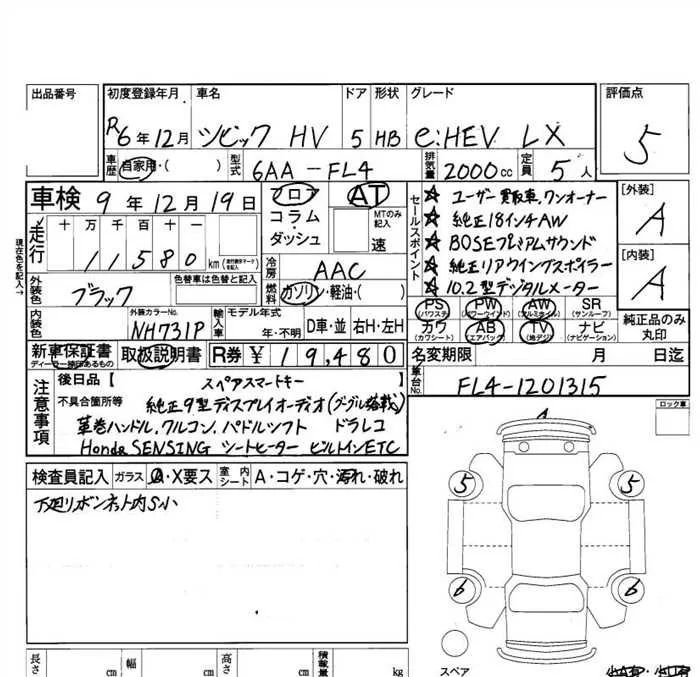 出品番号 初度登録年月 車名 ドア 形状 グレード 評価点
R6年12月 シビック HV 5 HB e:HEV LX 5
車歴 自家用・( ) 型式 6AA-FL4 排気量 2000cc 定員 5人
車検 9年12月19日 フロア AT セールスポイント ☆ ユーザー買取車,ワンオーナー [外装]
コラム MTのみ記入 ☆ 純正18インチAW A
現在色を記入→ 走行 十万千百十一 11580 km (走行数字マークを記入) ダッシュ 速 ☆ BOSEプレミアムサウンド
冷房 AAC ☆ 純正リアウイングスポイラー [内装]
外装色 ブラック 色替車は色替と記入 燃料 ガソリン・軽油・( ) ☆ 10.2型デジタルメーター A
PS (パワステ) PW (パワーウインド) AW (アルミホイル) SR (サンルーフ) 純正品のみ丸印
内装色 外装カラーNo. NH731P 輸入車 モデル年式 年・不明 D車・並 右H・左H カワ (カワシート) AB (エアバック) TV (地デジ) ナビ (ナビゲーション)
新車保証書 ディーラー捺印あるもの 取扱説明書 R券 ¥19,480 名変期限 月 日迄
注意事項 後日品【 スペアスマートキー 】 車台No. FL4-1201315
不具合箇所等 純正9型ディスプレイオーディオ(グーグル搭載) ロック車
革巻ハンドル,ワルコン,パドルシフト ドラレコ A
Honda SENSING シートヒーター ビルトインETC
検査員記入 ガラス A・X要ス 室内シート A・コゲ・穴・汚れ・破れ 5 5
下廻リボンネット内S小
6 6
長さ cm 幅 cm 高さ cm 積載量 kg スペア